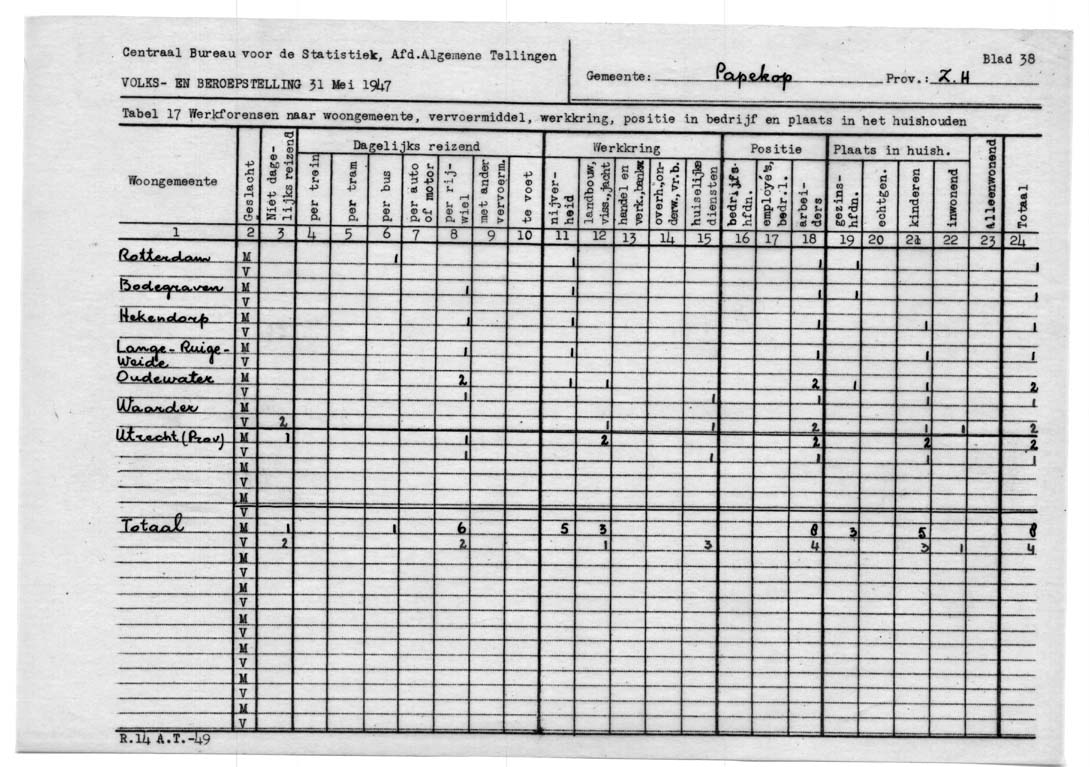 Centraal Bureau voor de Statistiek, Afd.Algemene Tellingen
VOLKS- EN BEROEPSTELLING 31 Mei 1947
Gemeente: Papekop Prov.: Z.H
Blad 38
Tabel 17 Werkforensen naar woongemeente, vervoermiddel, werkkring, positie in bedrijf en plaats in het huishouden
Woongemeente Geslacht Niet dage-lijks reizend Dagelijks reizend Werkkring Positie Plaats in huish. Alleenwonend Totaal
per trein per tram per bus per auto of motor per rij-wiel met ander vervoerm. te voet nijver-heid landbouw, viss.,jacht handel en verk.,bankw overh.,on-derw,vr.b. huiselijke diensten bedrijfs-hfdn. employé's, bedr.l. arbei-ders gezins-hfdn. echtgen. kinderen inwonend
1 2 3 4 5 6 7 8 9 10 11 12 13 14 15 16 17 18 19 20 21 22 23 24
Rotterdam M 1 1 1 1 1
V
Bodegraven M 1 1 1 1 1
V
Hekendorp M 1 1 1 1 1
V
Lange-Ruige- M 1 1 1 1 1
Weide V
Oudewater M 2 1 1 2 1 1 2
V 1 1 1 1 1
Waarder M
V 2 1 1 2 1 1 2
Utrecht (Prov) M 1 1 2 2 2 2
V 1 1 1 1 1
M
V
M
V
Totaal M 1 1 6 5 3 8 3 5 8
V 2 2 1 3 4 3 1 4
M
V
M
V
M
V
M
V
M
V
M
V
R.14 A.T.-49